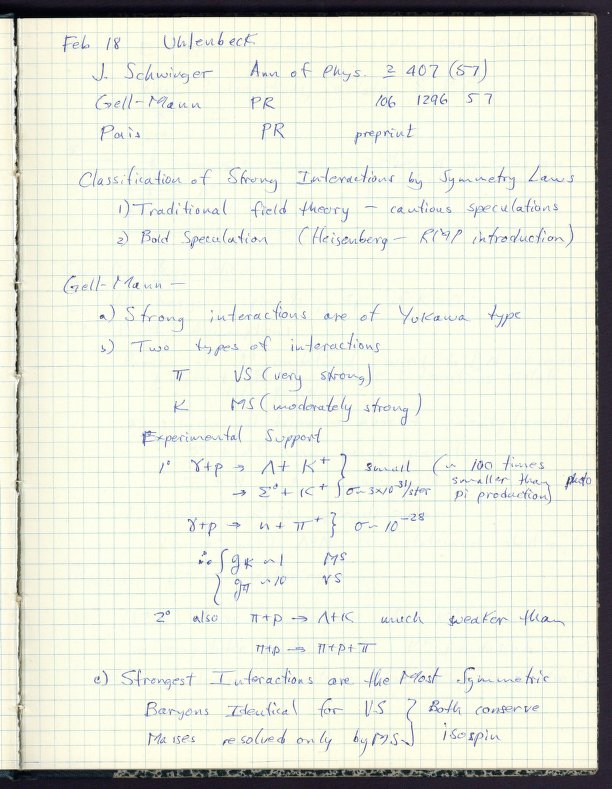 Feb 18 Uhlenbeck
J. Schwinger Ann of Phys. 2 407 (57)
Gell-Mann PR 106 1296 57
Pais PR preprint
Classification of Strong Interactions by Symmetry Laws
1) Traditional field theory — cautious speculations
2) Bold Speculation (Heisenberg — introduction)
Gell-Mann —
a) Strong interactions are of Yukawa type
b) Two types of interactions
π VS (very strong)
K MS (moderately strong)
Experimental Support
1° γ+p → Λ + K⁺ } small (~ 100 times
smaller than photo
→ Σ° + K⁺ } σ~3x10⁻³¹/ster pi production)
γ+p → n + π⁺ } σ~10⁻²⁸
∴ { gK ~1 MS
{ gπ ~10 VS
2° also π+p → Λ+K much weaker than
π+p → π+p+π
c) Strongest Interactions are the Most Symmetric
Baryons Identical for VS } Both conserve
Masses resolved only by MS } isospin